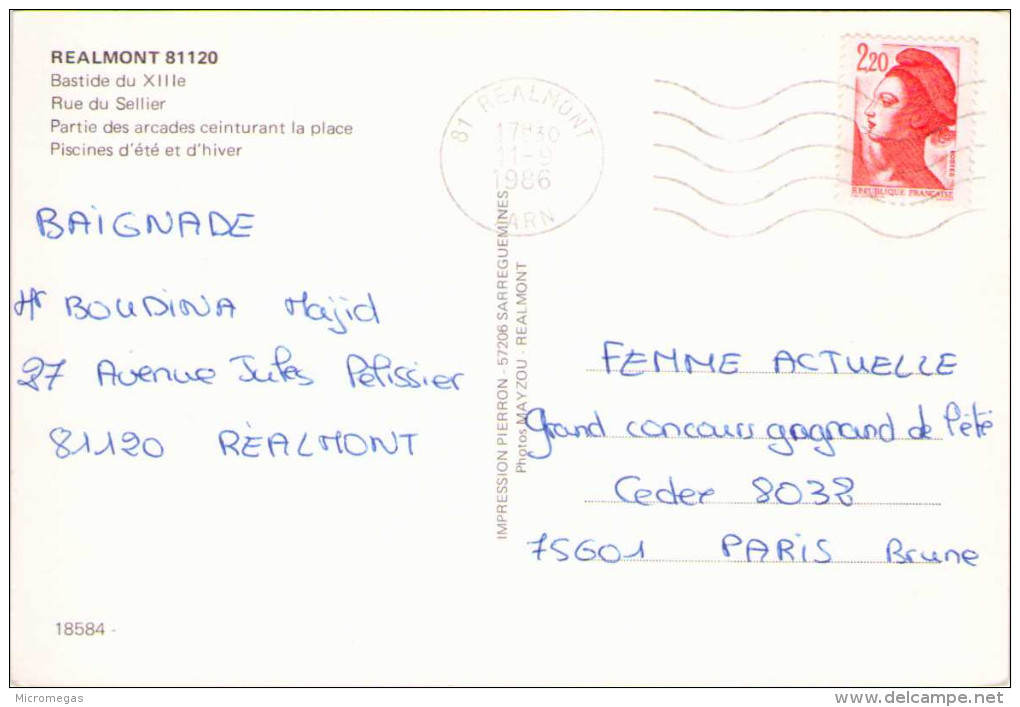 REALMONT 81120
Bastide du XIIIe
Rue du Sellier
Partie des arcades ceinturant la place
Piscines d'été et d'hiver
BAIGNADE
Mr BOUDINA Majid
27 Avenue Jules Pelissier
81120 RÉALMONT
18584 -
IMPRESSION PIERRON - 57206 SARREGUEMINES
Photos MAYZOU - REALMONT
81 REALMONT
17H30
1986
TARN
2,20
REPUBLIQUE FRANÇAISE
FEMME ACTUELLE
grand concours gagnand de l'été
Cedex 8038
75601 PARIS Brune
Micromegas
www.delcampe.net